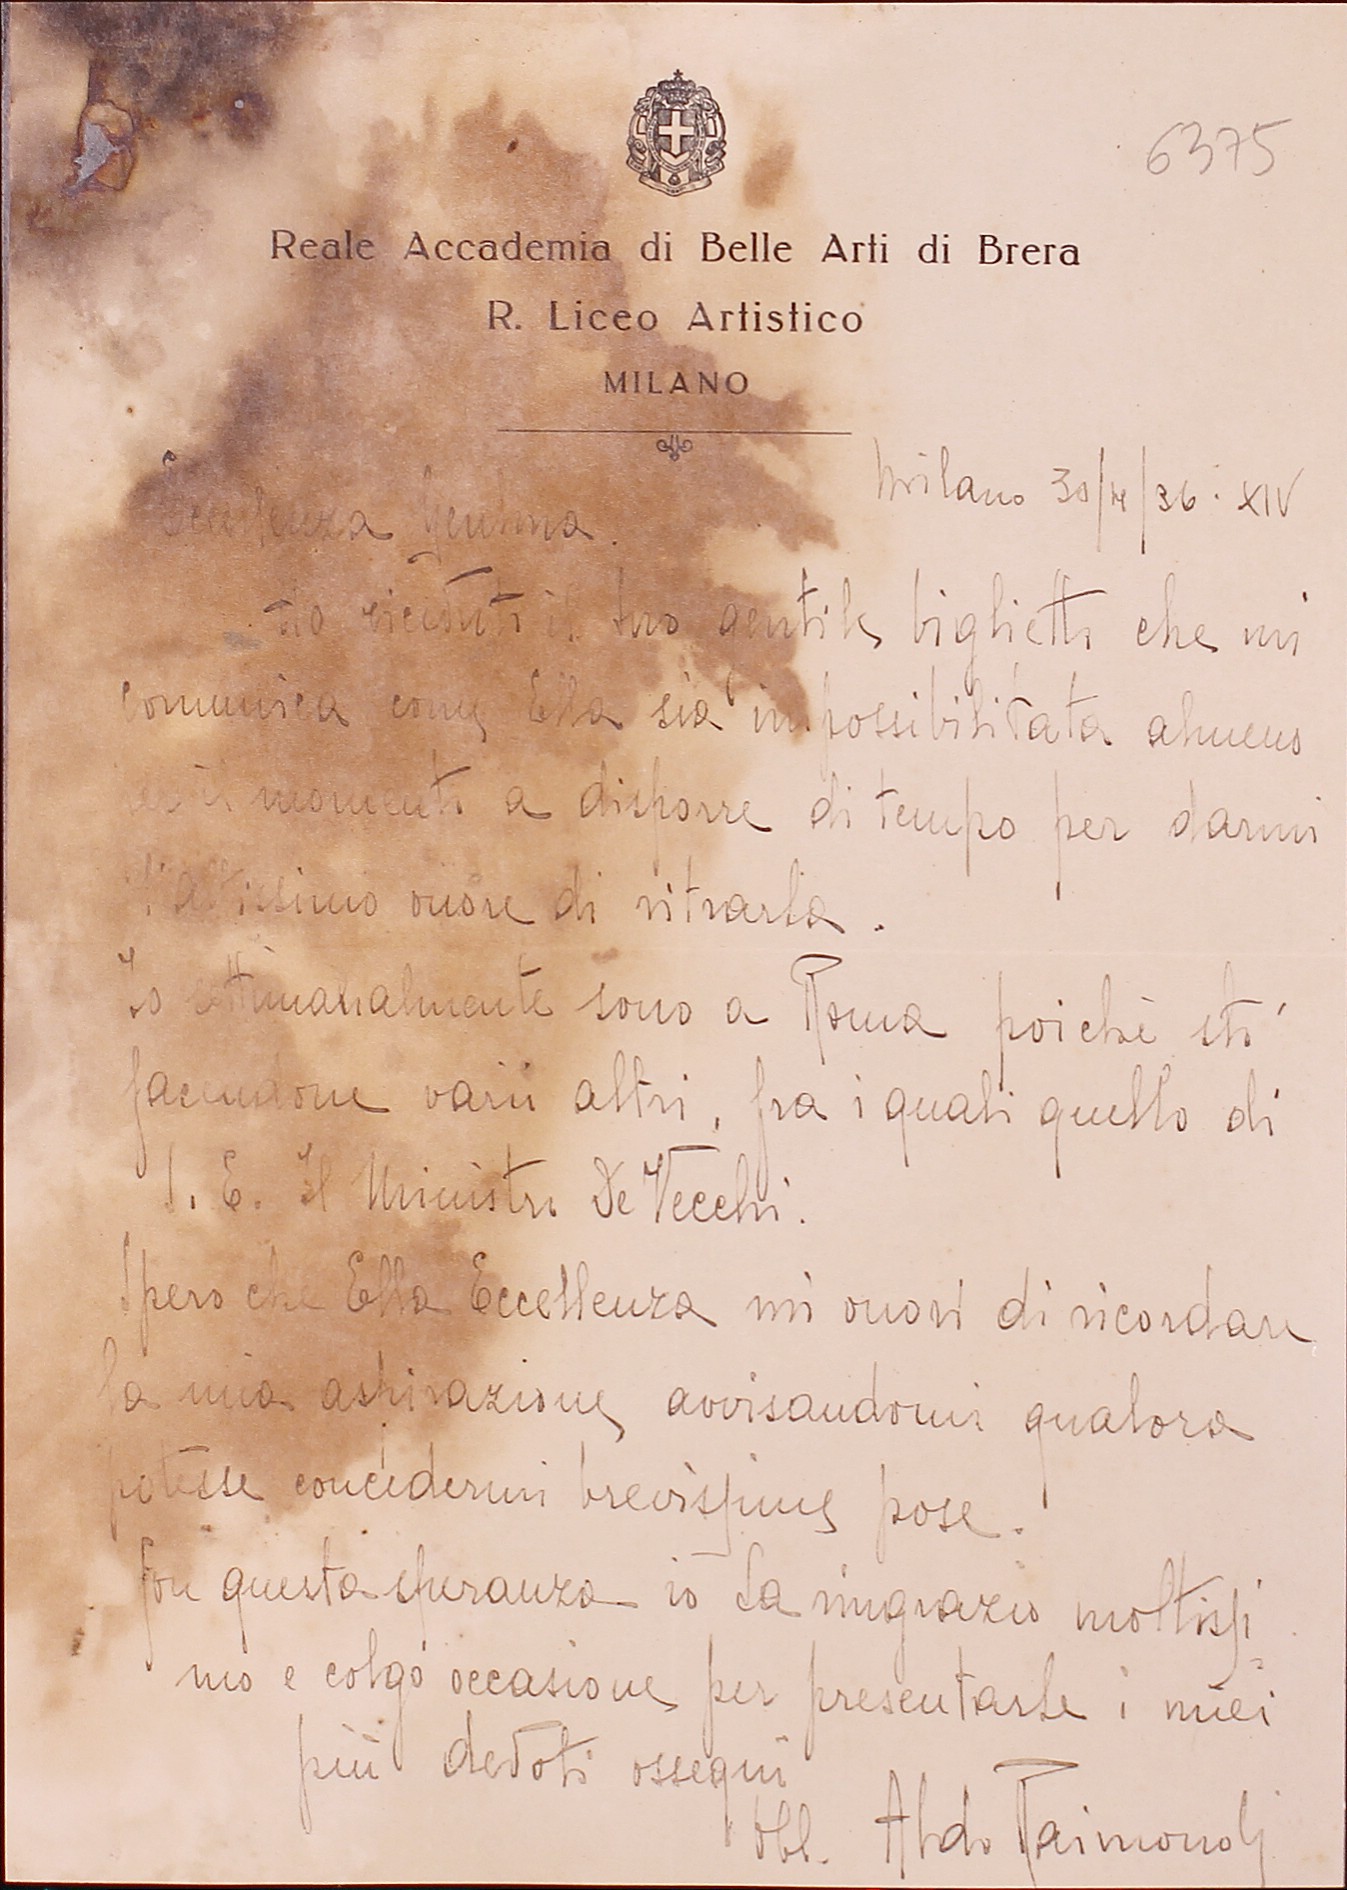 6375
Reale Accademia di Belle Arti di Brera
R. Liceo Artistico
MILANO
Milano 30/4/36. XIV
Eccellenza
Ho ricevuto il suo gentile biglietto che mi
comunica come Ella sia impossibilitata almeno
per il momento a disporre di tempo per darmi
l'altissimo onore di ritrarla.
Io settimanalmente sono a Roma poichè sto'
facendone varii altri, fra i quali quello di
S. E. Il Ministro De Vecchi.
Spero che Ella Eccellenza mi onori di ricordare
la mia aspirazione, avvisandomi qualora
potesse concedermi brevissime pose.
Con questa speranza io La ringrazio moltissi
mo e colgo occasione per presentarle i miei
più devoti ossequi
Obl. Aldo Raimondi